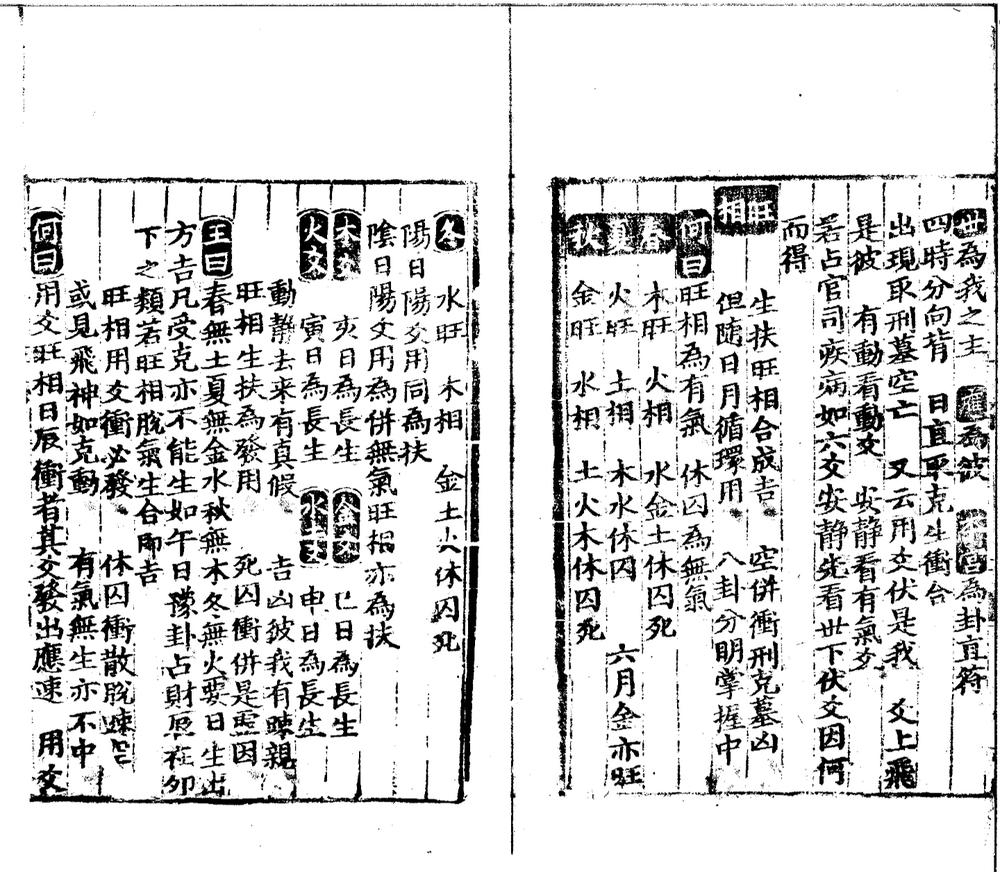 世為我之主 應為彼 本宮為卦直符
四時分向背 日直取克生衝合
出現取刑墓空亡 又云用爻伏是我 爻上飛
是彼 有動看動爻 安靜看有氣爻
若占官司疾病如六爻安靜先看世下伏爻因何
而得
旺相
生扶旺相合成吉 空併衝刑克墓凶
但隨日月循環用 八卦分明掌握中
何曰 旺相為有氣 休囚為無氣
春 木旺 火相 水金土休囚死
夏 火旺 土相 木水休囚 六月金亦旺
秋 金旺 水相 土火木休囚死
冬 水旺 木相 金土火休囚死
陽日陽爻用同為扶
陰日陽爻用為併無氣旺相亦為扶
木爻 亥日為長生 金爻 巳日為長生
火爻 寅日為長生 水土爻 申日為長生
動靜去來有真假 吉凶彼我有踈親
旺相生扶為發用 死囚衝併是因
王曰 春無土夏無金水秋無木冬無火要日生出
方吉凡受克亦不能生如午日豫卦占財在卯
下之類若旺相脫氣生合即吉
旺相用爻衝必發 休囚衝散脫速空
或見飛神如克動 有氣無生亦不中
何曰 用爻旺相日辰衝者其爻發出應速 用爻